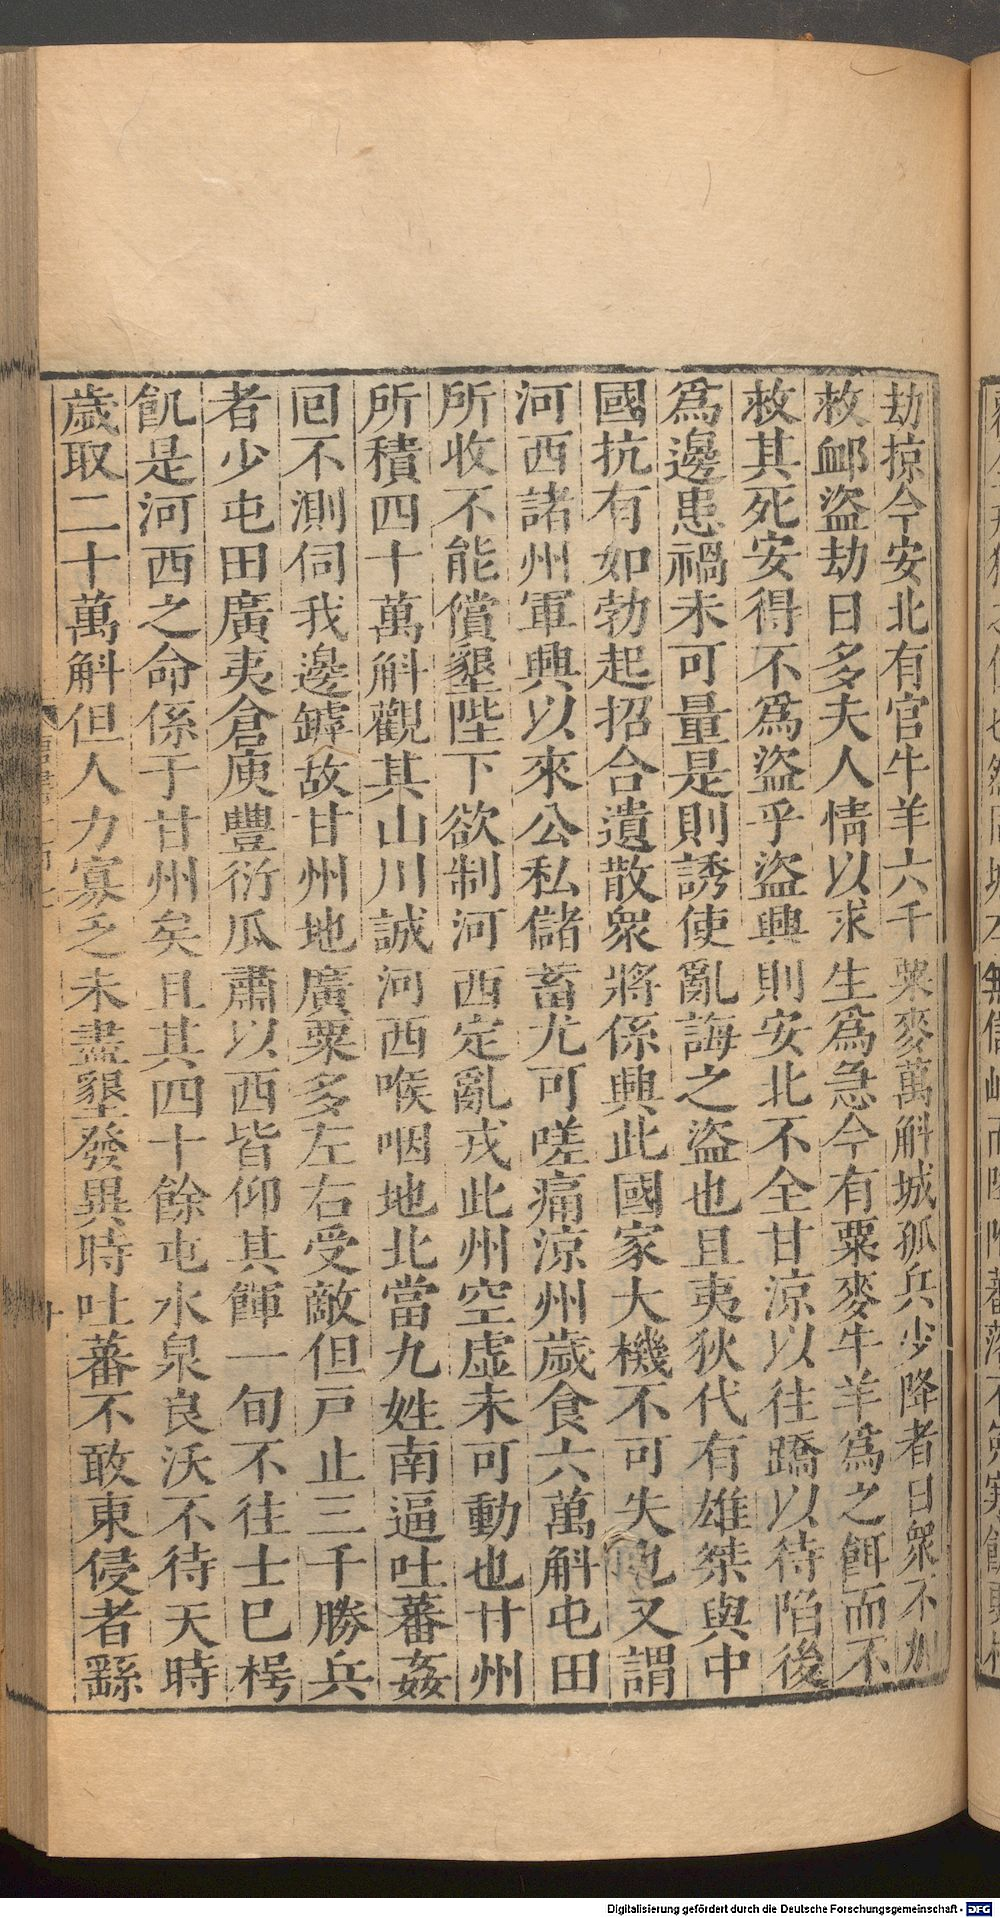 劫掠今安北有官牛羊六千粟麥萬斛城孤兵少降者日衆不加
救䘏盜劫日多夫人情以求生爲急今有粟麥牛羊爲之餌而不
救其死安得不爲盜乎盜興則安北不全甘涼以往蹻以待陷後
爲邊患禍未可量是則誘使亂誨之盜也且夷狄代有雄桀與中
國抗有如勃起招合遺散衆將係興此國家大機不可失也又謂
河西諸州軍興以來公私儲蓄尤可嗟痛涼州歲食六萬斛屯田
所收不能償墾陛下欲制河西定亂戎此州空虛未可動也甘州
所積四十萬斛觀其山川誠河西喉咽地北當九姓南逼吐蕃姦
回不測伺我邊罅故甘州地廣粟多左右受敵但戶止三千勝兵
者少屯田廣夷倉庾豐衍瓜肅以西皆仰其餫一旬不往士已枵
飢是河西之命係于甘州矣且其四十餘屯水泉良沃不待天時
歲取二十萬斛但人力寡乏未盡墾發異時吐蕃不敢東侵者繇
Digitalisierung gefördert durch die Deutsche Forschungsgemeinschaft - DFG